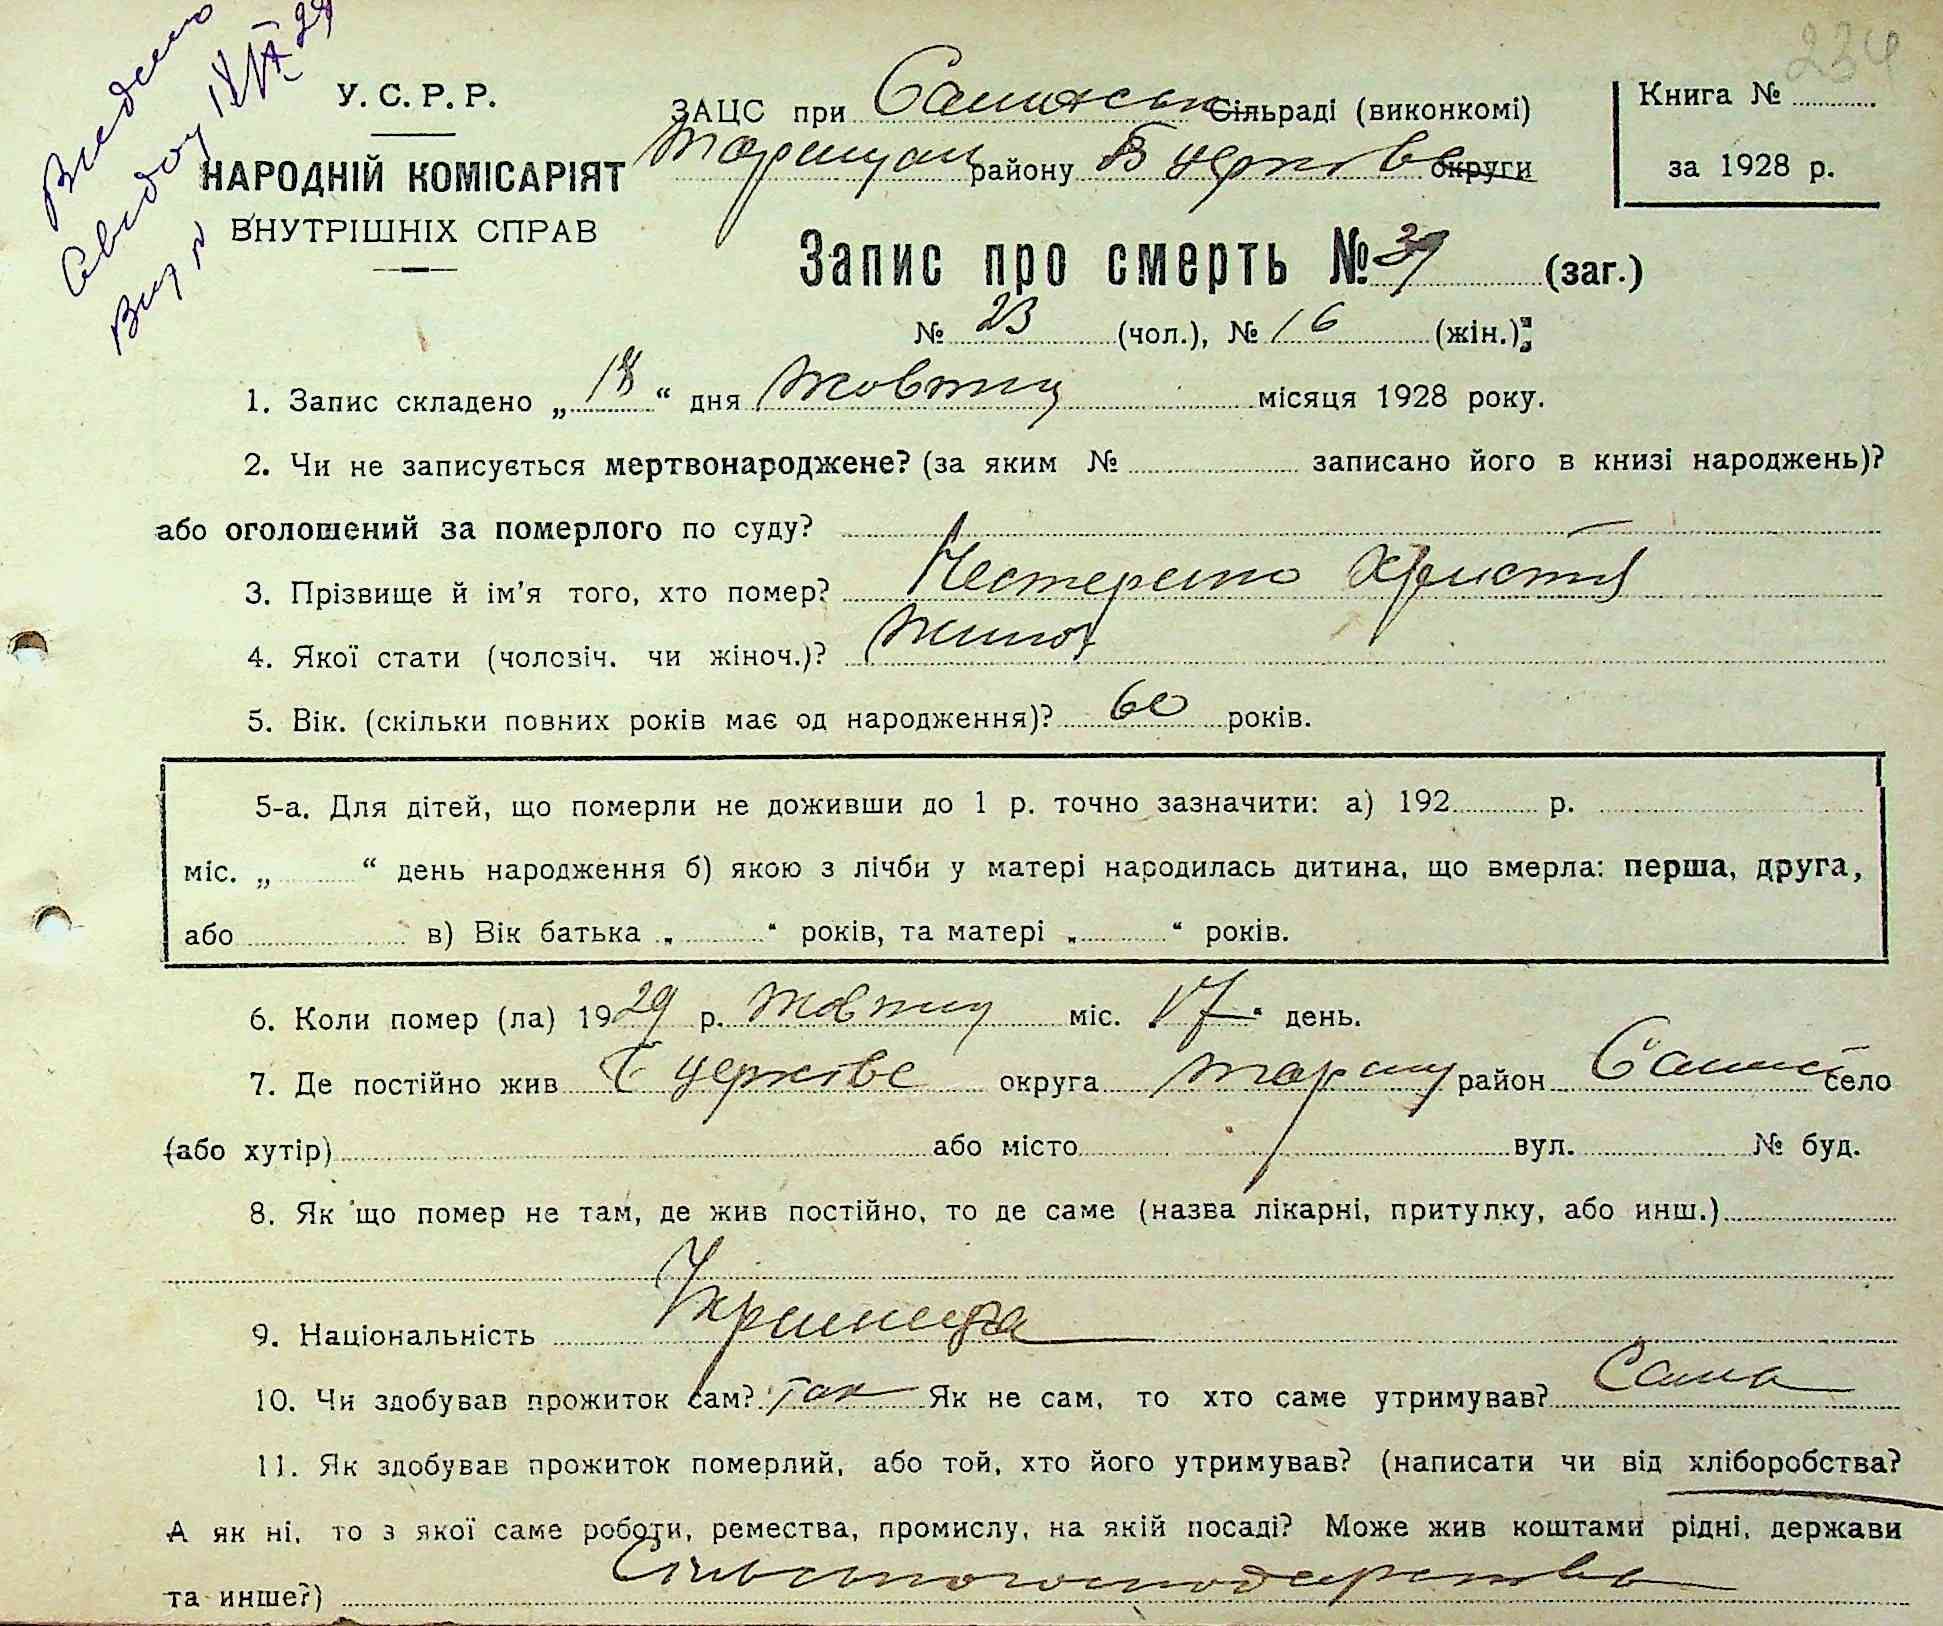 234
У. С. Р. Р.
НАРОДНІЙ КОМІСАРІЯТ
ВНУТРІШНІХ СПРАВ
ЗАЦС при Сільраді (виконкомі)
району Б церківс округи
Книга №
за 1928 р.
Запис про смерть № 39 (заг.)
№ 23 (чол.), № 16 (жін.)
1. Запис складено „18“ дня Жовтня місяця 1928 року.
2. Чи не записується мертвонароджене? (за яким № записано його в книзі народжень)?
або оголошений за померлого по суду?
3. Прізвище й ім'я того, хто помер? Нестеренко Христя
4. Якої стати (чоловіч. чи жіноч.)? жіноч
5. Вік. (скільки повних років має од народження)? 60 років.
5-а. Для дітей, що померли не доживши до 1 р. точно зазначити: а) 192 р.
міс. „ “ день народження б) якою з лічби у матері народилась дитина, що вмерла: перша, друга,
або в) Вік батька „ “ років, та матері „ “ років.
6. Коли помер (ла) 1929 р. Жовтня міс. „17“ день.
7. Де постійно жив Б церківс округа Таращ район село
(або хутір) або місто вул. № буд.
8. Як що помер не там, де жив постійно, то де саме (назва лікарні, притулку, або инш.)
9. Національність Украинка
10. Чи здобував прожиток сам? Так Як не сам, то хто саме утримував? Сама
11. Як здобував прожиток померлий, або той, хто його утримував? (написати чи від хліборобства?
А як ні, то з якої саме роботи, ремества, промислу, на якій посаді? Може жив коштами рідні, держави
та инше?) Сільськогосподарства